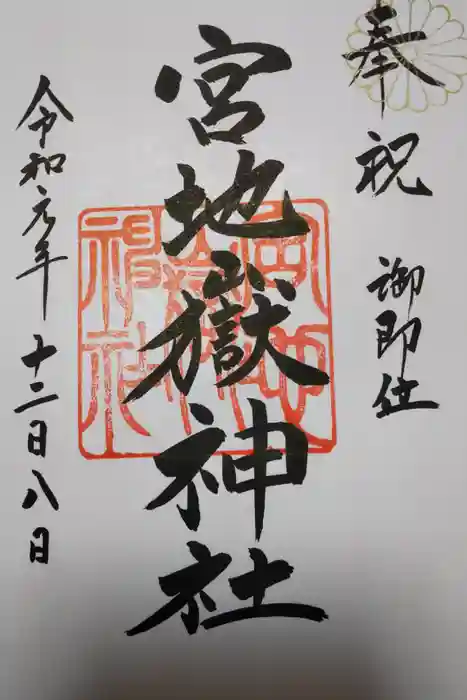 奉祝 御即位
宮地嶽神社
令和元年 十二日八日
宮地
嶽
神社